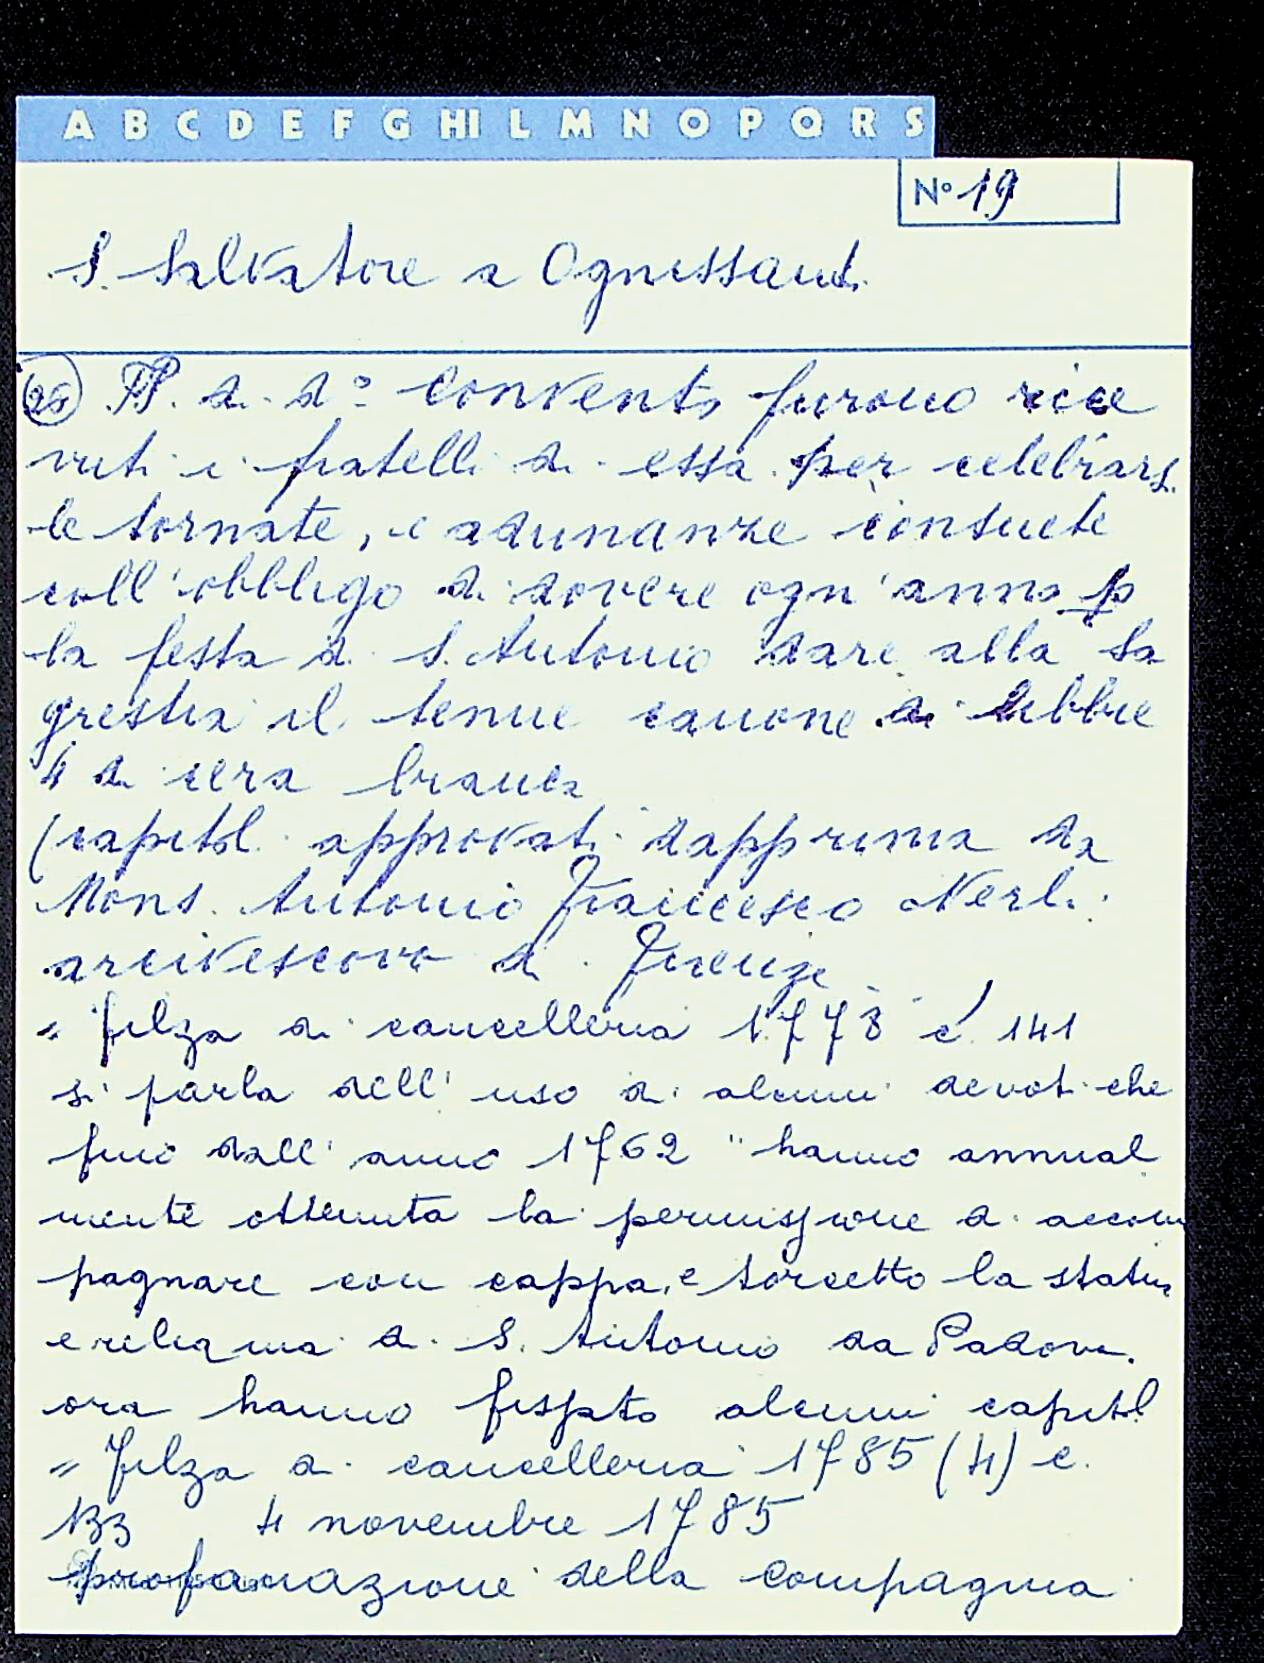 A B C D E F G HI L M N O P Q R S
Nº 19
S. Salvatore a Ognissanti
(26) PP. di dº Convento furono rice
vuti i fratelli di essa per celebrarsi
le tornate, e adunanze consuete
coll'obbligo di dovere ogn'anno p
la festa di S. Antonio dare alla Sa
grestia il tenue canone di libbre
4 di cera bianca
(capitoli approvati dapprima da
Mons. Antonio Francesco Nerli
arcivescovo di Firenze
" filza di cancelleria 1778 c. 141
si parla dell'uso di alcuni devoti che
fino dall'anno 1762 "hanno annual
mente ottenuta la permissione di accom
pagnare con cappa, e torcetto la statua
e reliquia di S. Antonio da Padova.
ora hanno alcuni capitoli
" Filza di cancelleria 1785 (4) c.
133 4 novembre 1785
profanazione della Compagnia